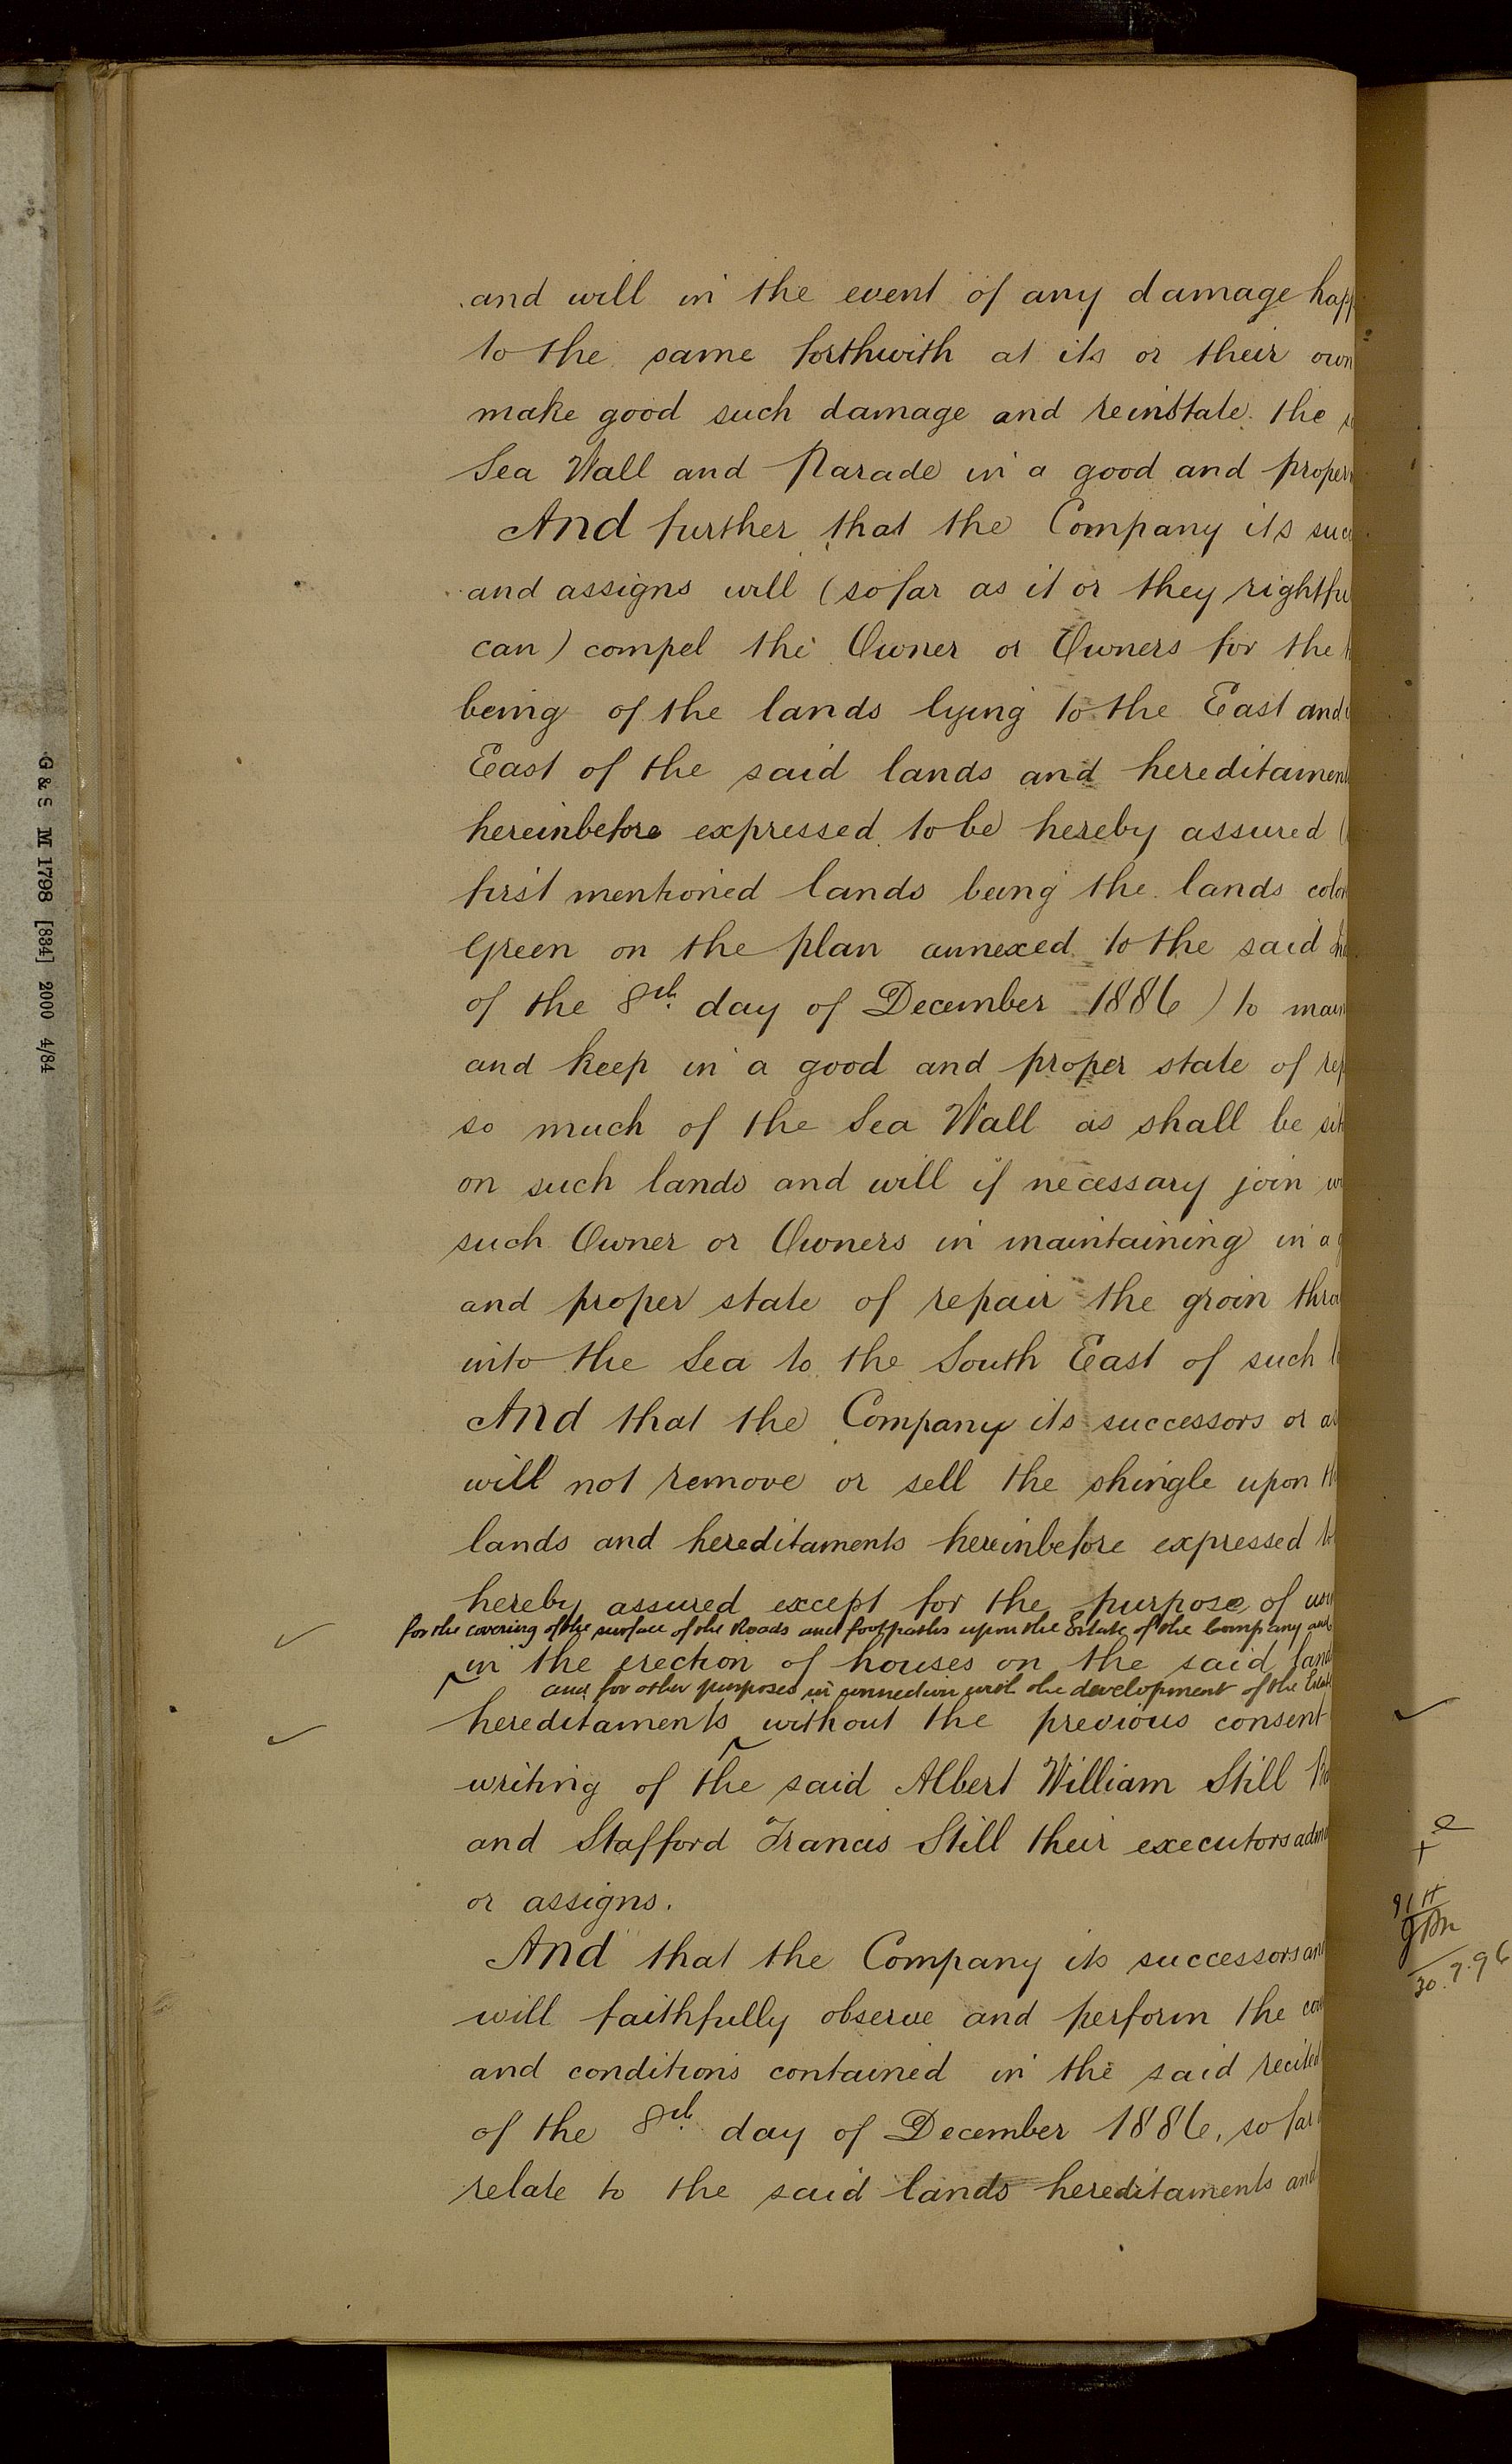 and will in the event of any damage happ
to the same forthwith at its or their own
make good such damage and reinstate the
Sea Wall and Parade in a good and proper
And further that the Company its succ
and assigns will (so far as it or they rightfu
can) compel the Owner or Owners for the
being of the lands lying to the East and
East of the said lands and hereditament
hereinbefore expressed to be hereby assured (
first mentioned lands being the lands color
Green on the plan annexed to the said
of the 8th day of December 1886) to main
and keep in a good and proper state of rep
so much of the Sea Wall as shall be sit
on such lands and will if necessary join w
such Owner or Owners in maintaining in a g
and proper state of repair the groin thro
into the Sea to the South East of such l
And that the Company its successors or as
will not remove or sell the shingle upon th
lands and hereditaments hereinbefore expressed to
hereby assured except for the purpose of usi
for the covering of the surface of the Roads and footpaths upon the Estate of the Company and
in the erection of houses on the said land
and for other purposes in connection with the development of the Estate
hereditaments without the previous consent
writing of the said Albert William Still
and Stafford Francis Still their executors adm
or assigns.
And that the Company its successors an
will faithfully observe and perform the cov
and conditions contained in the said recited
of the 8th day of December 1886, so far
relate to the said lands hereditaments and
G & S M 1798 [884] 2000 4/84
30.9.96